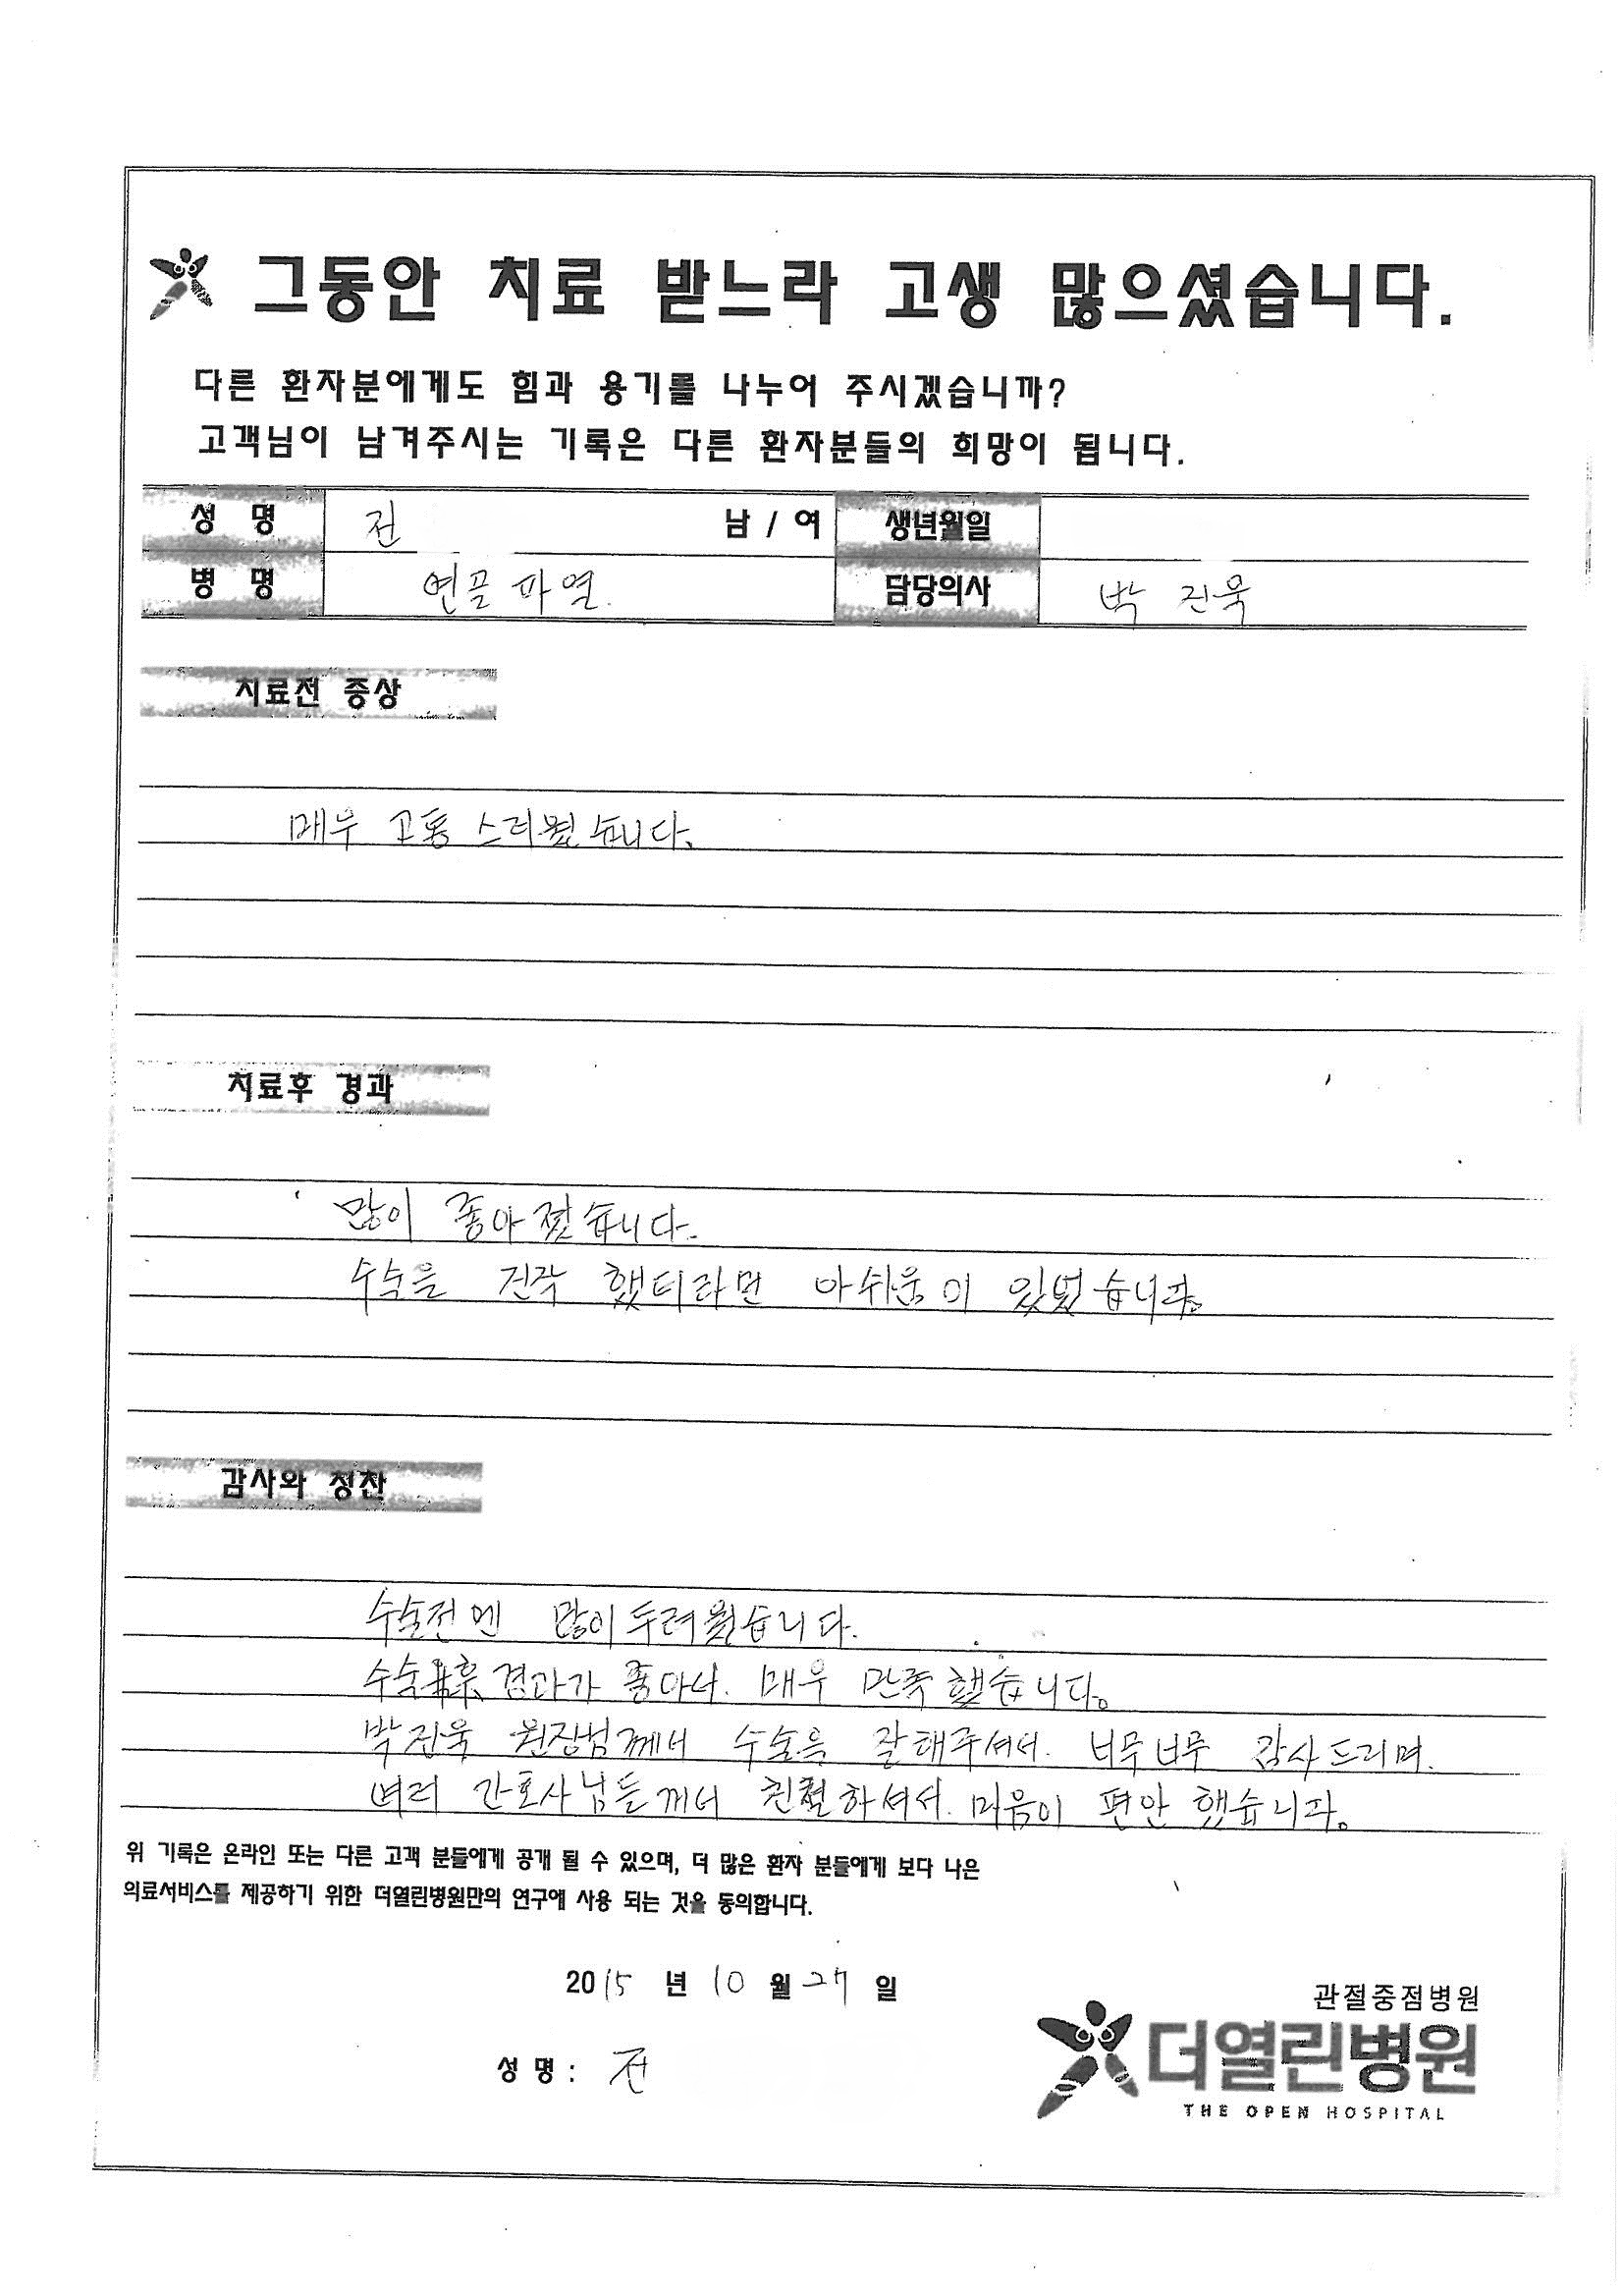 그동안 치료 받느라 고생 많으셨습니다.
다른 환자분에게도 힘과 용기를 나누어 주시겠습니까?
고객님이 남겨주시는 기록은 다른 환자분들의 희망이 됩니다.
성 명 전 남 / 여 생년월일
병 명 연골 파열. 담당의사 박 진욱
치료전 증상
매우 고통 스러웠습니다.
치료후 경과
많이 좋아 졌습니다.
수술을 진작 했더라면 아쉬움이 있었습니다.
감사와 칭찬
수술전엔 많이 두려웠습니다.
수술후 경과가 좋아서. 매우 만족 했습니다.
박진욱 원장님께서 수술을 잘해주셔서. 너무너무 감사드리며.
여러 간호사님들께서 친절하셔서. 마음이 편안 했습니다.
위 기록은 온라인 또는 다른 고객 분들에게 공개 될 수 있으며, 더 많은 환자 분들에게 보다 나은
의료서비스를 제공하기 위한 더열린병원만의 연구에 사용 되는 것을 동의합니다.
2015 년 10 월 27 일
성 명 : 전
관절중점병원
더열린병원
THE OPEN HOSPITAL